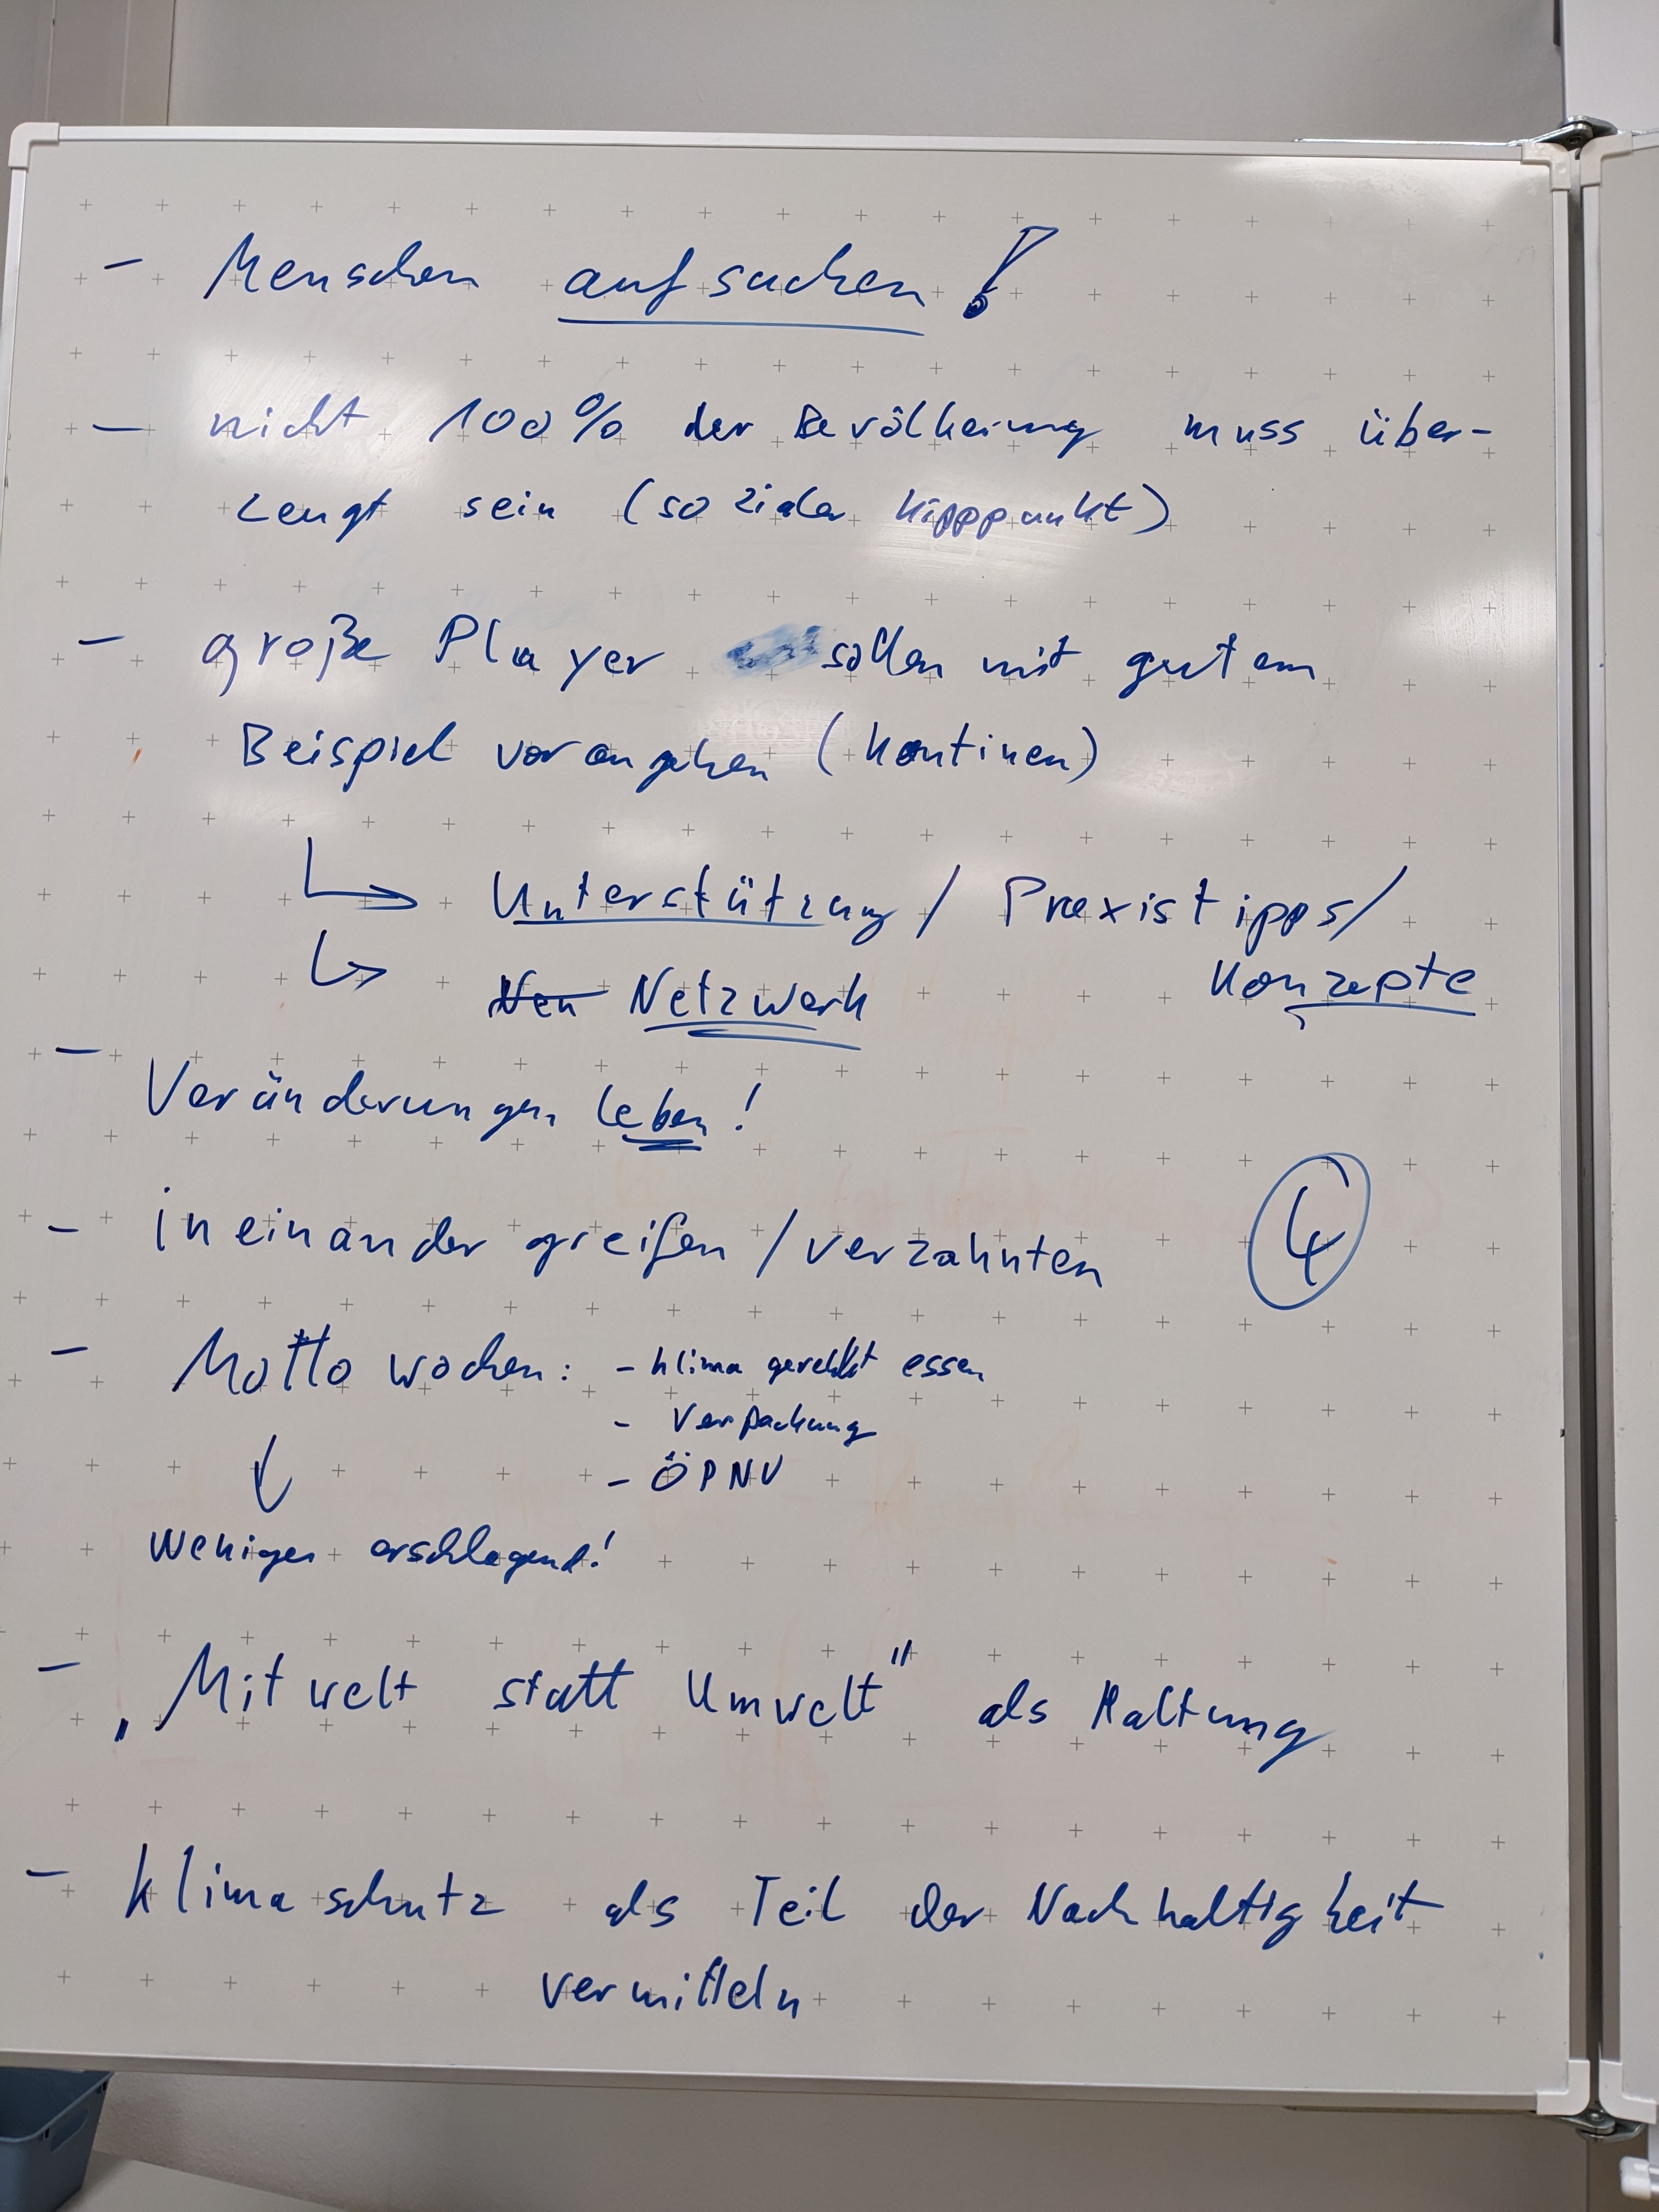 - Menschen aufsuchen!
- nicht 100% der Bevölkerung muss über-
zeugt sein (sozialer Kipppunkt)
- große Player sollen mit gutem
Beispiel vorangehen (Kantinen)
↳ Unterstützung / Praxistipps /
Konzepte
↳ Neu Netzwerk
- Veränderungen leben!
- ineinander greifen / verzahnten
4
- Mottowochen: - klimagerecht essen
- Verpackung
- ÖPNV
↓
weniger erschlagend!
- „Mitwelt statt Umwelt" als Haltung
- Klimaschutz als Teil der Nachhaltigkeit
vermitteln